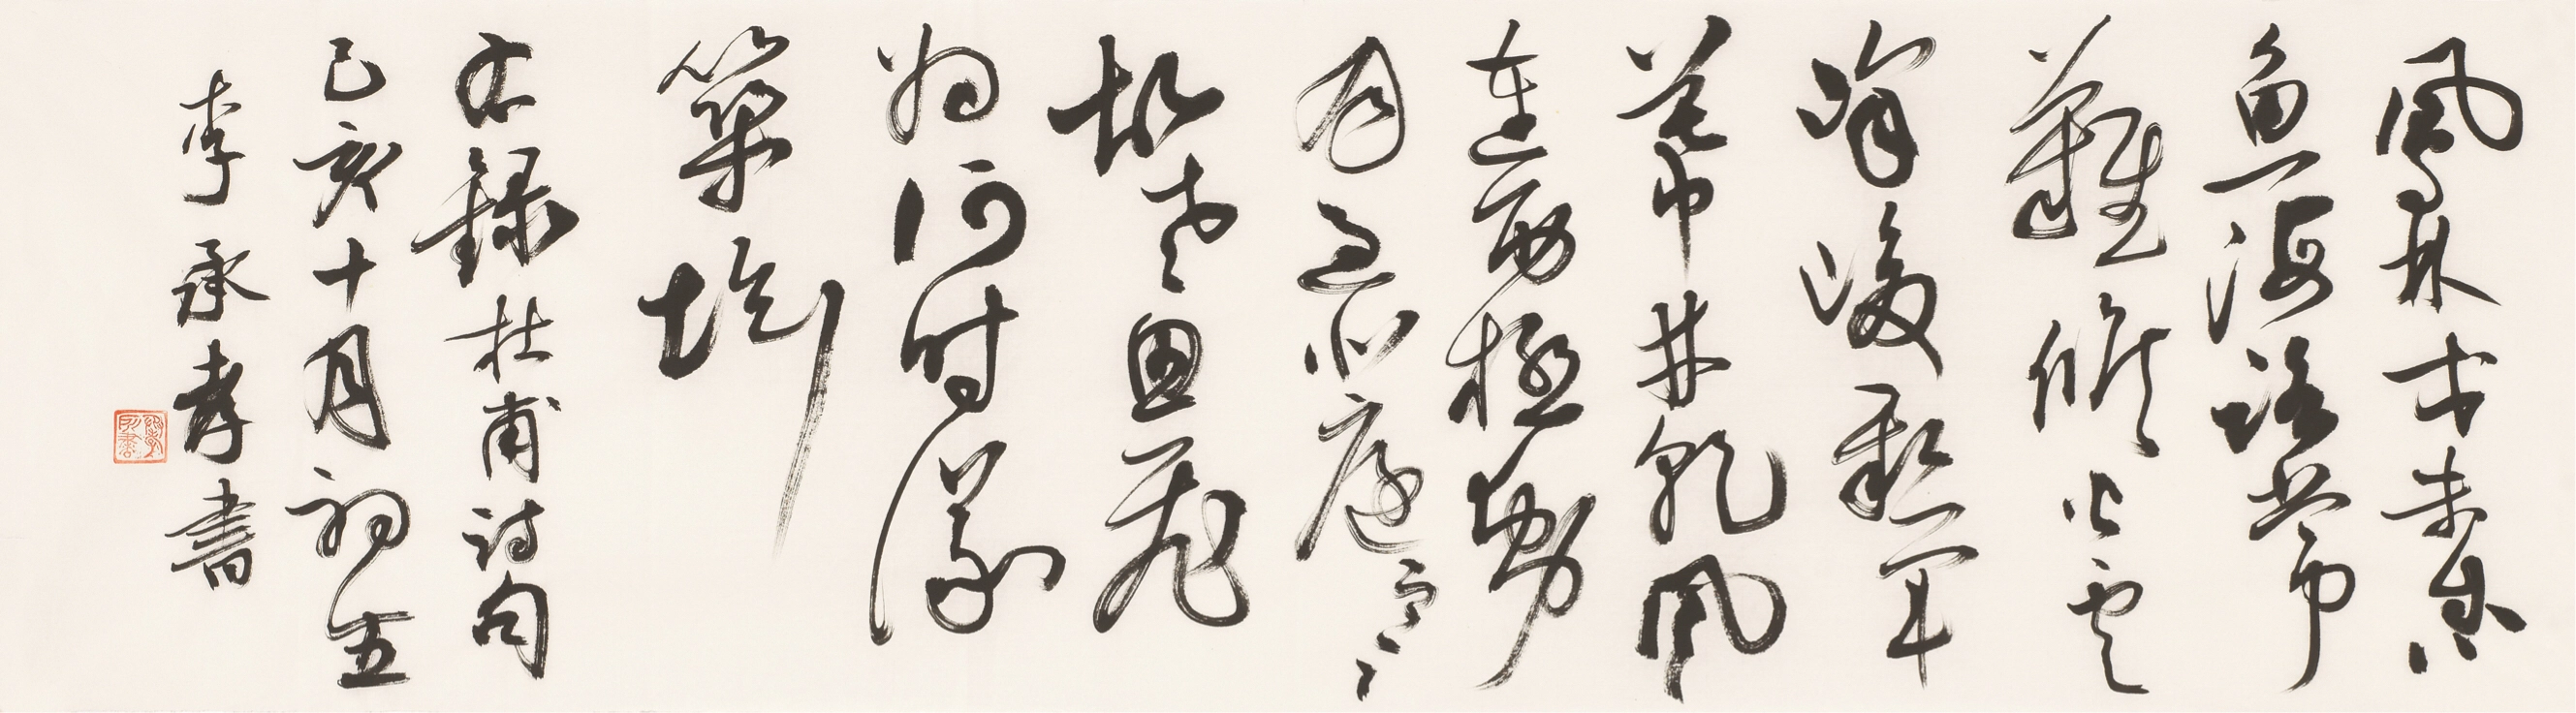 鳳林戈未息
魚海路常
難候火雲
烽峻懸軍
幕井乾風
連西極動
月過北庭寒
故老思飛
將何時議
築壇
右錄杜甫詩句
己亥十月初五
李承孝書